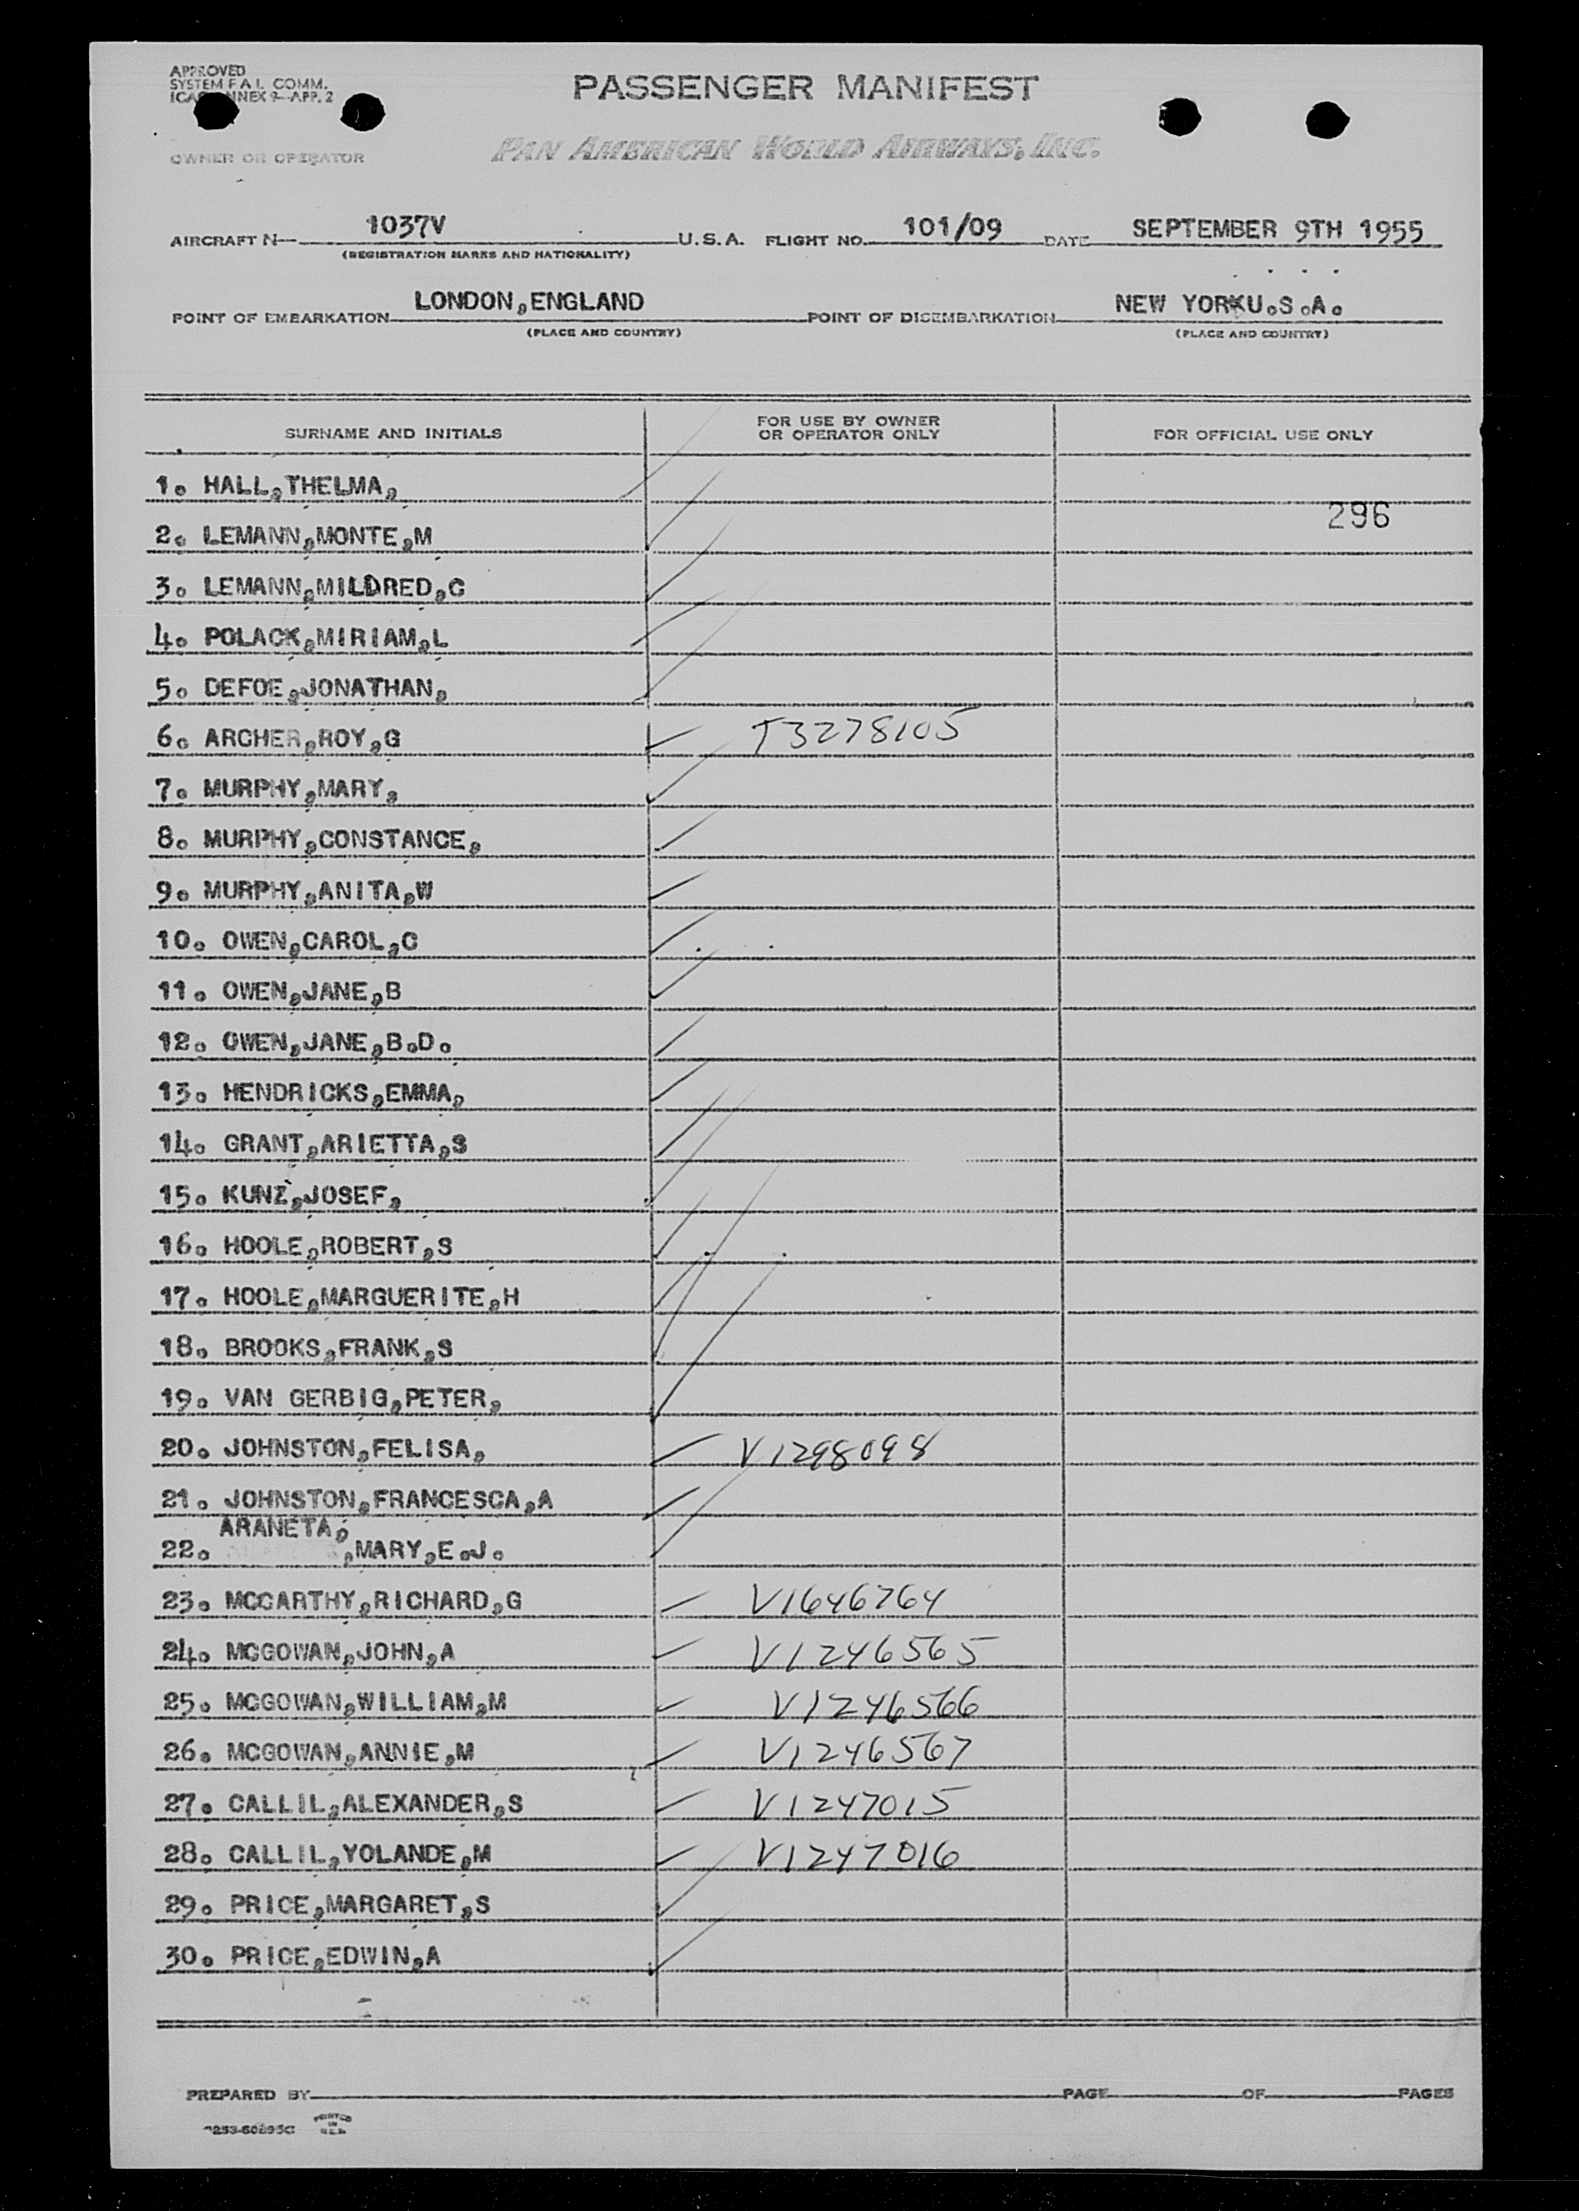 APPROVED
SYSTEM F A L COMM.
ANNEX 9-APP. 2
PASSENGER MANIFEST
OWNER OR OPERATOR
PAN AMERICAN WORLD AIRWAYS, INC.
AIRCRAFT N- 1037V U.S.A. FLIGHT NO. 101/09 DATE SEPTEMBER 9TH 1955
(REGISTRATION MARKS AND NATIONALITY)
POINT OF EMBARKATION LONDON,ENGLAND POINT OF DISEMBARKATION NEW YORKU.S.A.
(PLACE AND COUNTRY) (PLACE AND COUNTRY)
SURNAME AND INITIALS FOR USE BY OWNER OR OPERATOR ONLY FOR OFFICIAL USE ONLY
1. HALL,THELMA,
296
2. LEMANN,MONTE,M
3. LEMANN,MILDRED,C
4. POLACK,MIRIAM,L
5. DEFOE,JONATHAN,
6. ARCHER,ROY,G T3278105
7. MURPHY,MARY,
8. MURPHY,CONSTANCE,
9. MURPHY,ANITA,W
10. OWEN,CAROL,C
11. OWEN,JANE,B
12. OWEN,JANE,B.D.
13. HENDRICKS,EMMA,
14. GRANT,ARIETTA,S
15. KUNZ,JOSEF,
16. HOOLE,ROBERT,S
17. HOOLE,MARGUERITE,H
18. BROOKS,FRANK,S
19. VAN GERBIG,PETER,
20. JOHNSTON,FELISA, V1298098
21. JOHNSTON,FRANCESCA,A
ARANETA,
22. ,MARY,E.J.
23. MCCARTHY,RICHARD,G V1646764
24. MCGOWAN,JOHN,A V1246565
25. MCGOWAN,WILLIAM,M V1246566
26. MCGOWAN,ANNIE,M V1246567
27. CALLIL,ALEXANDER,S V1247015
28. CALLIL,YOLANDE,M V1247016
29. PRICE,MARGARET,S
30. PRICE,EDWIN,A
PREPARED BY PAGE OF PAGES
PRINTED
IN
U.S.A.